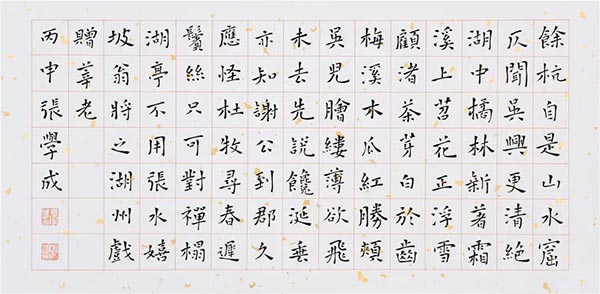 餘杭自是山水窟
仄聞吳興更清絕
湖中橘林新著霜
溪上苕花正浮雪
顧渚茶芽白於齒
梅溪木瓜紅勝頰
吳兒膾縷薄欲飛
未去先說饞涎垂
亦知謝公到郡久
應怪杜牧尋春遲
鬢絲只可對禪榻
湖亭不用張水嬉
坡翁將之湖州戲
贈莘老
丙申張學成